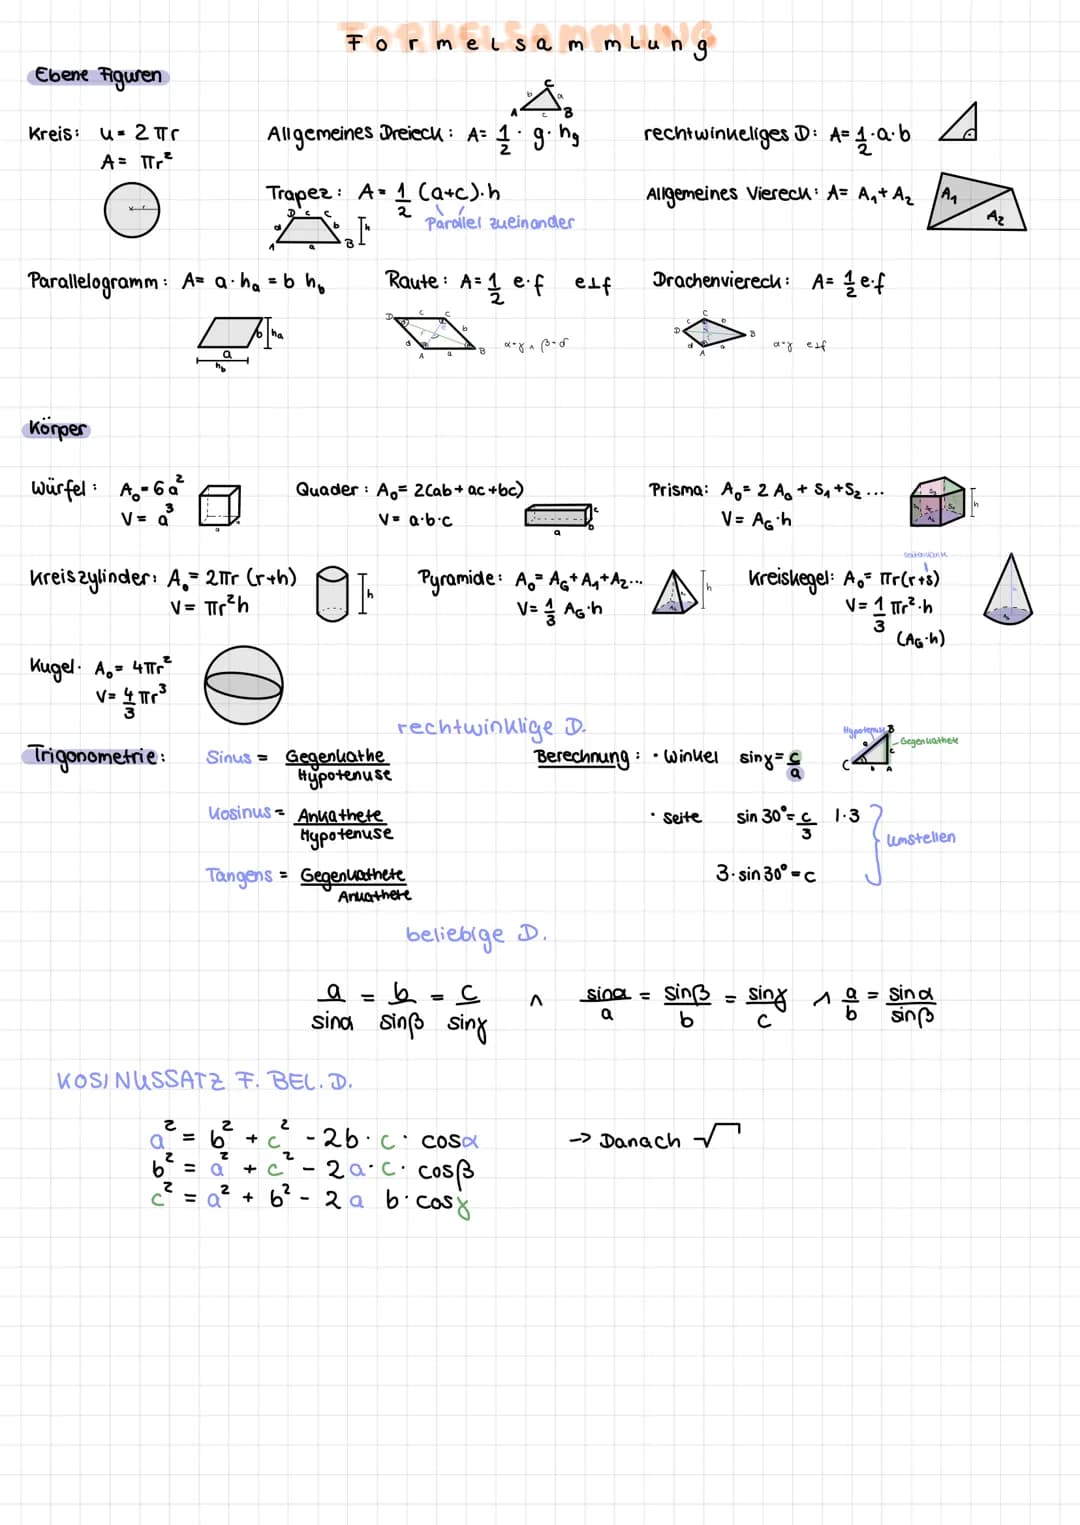 Formelsammlung
Ebene Figuren
Kreis: u = 2πr
A = πr²
Allgemeines Dreieck: A = 1/2 · g · hg
rechtwinkeliges D: A = 1/2 · a · b
Trapez: A = 1/2 (a+c) · h
Parallel zueinander
Allgemeines Viereck: A = A₁ + A₂
A₁
A₂
Parallelogramm: A = a · ha = b hb
Raute: A = 1/2 e · f e⊥f
Drachenviereck: A = 1/2 e · f
α=γ ∧ β=δ
α=γ e⊥f
Körper
Würfel: A₀ = 6a²
V = a³
Quader: A₀ = 2(ab + ac + bc)
V = a·b·c
Prisma: A₀ = 2 AG + S₁ + S₂ ...
V = AG · h
Kreiszylinder: A₀ = 2πr (r+h)
V = πr²h
Pyramide: A₀ = AG + A₁ + A₂...
V = 1/3 AG · h
Kreiskegel: A₀ = πr(r+s)
V = 1/3 πr² · h
(AG · h)
Kugel: A₀ = 4πr²
V = 4/3 πr³
rechtwinklige D.
Trigonometrie:
Sinus = Gegenkathe / Hypotenuse
Berechnung: · Winkel sinγ = c/a
Hypotenuse
Gegenkathete
Kosinus = Ankathete / Hypotenuse
· Seite sin 30° = c/3 | · 3
Umstellen
3 · sin 30° = c
Tangens = Gegenkathete / Ankathete
beliebige D.
a/sinα = b/sinβ = c/sinγ ∧ sinα/a = sinβ/b = sinγ/c ∧ a/b = sinα/sinβ
KOSINUSSATZ F. BEL. D.
a² = b² + c² - 2b · c · cosα
→ Danach √
b² = a² + c² - 2a · c · cosβ
c² = a² + b² - 2 a b · cosγ